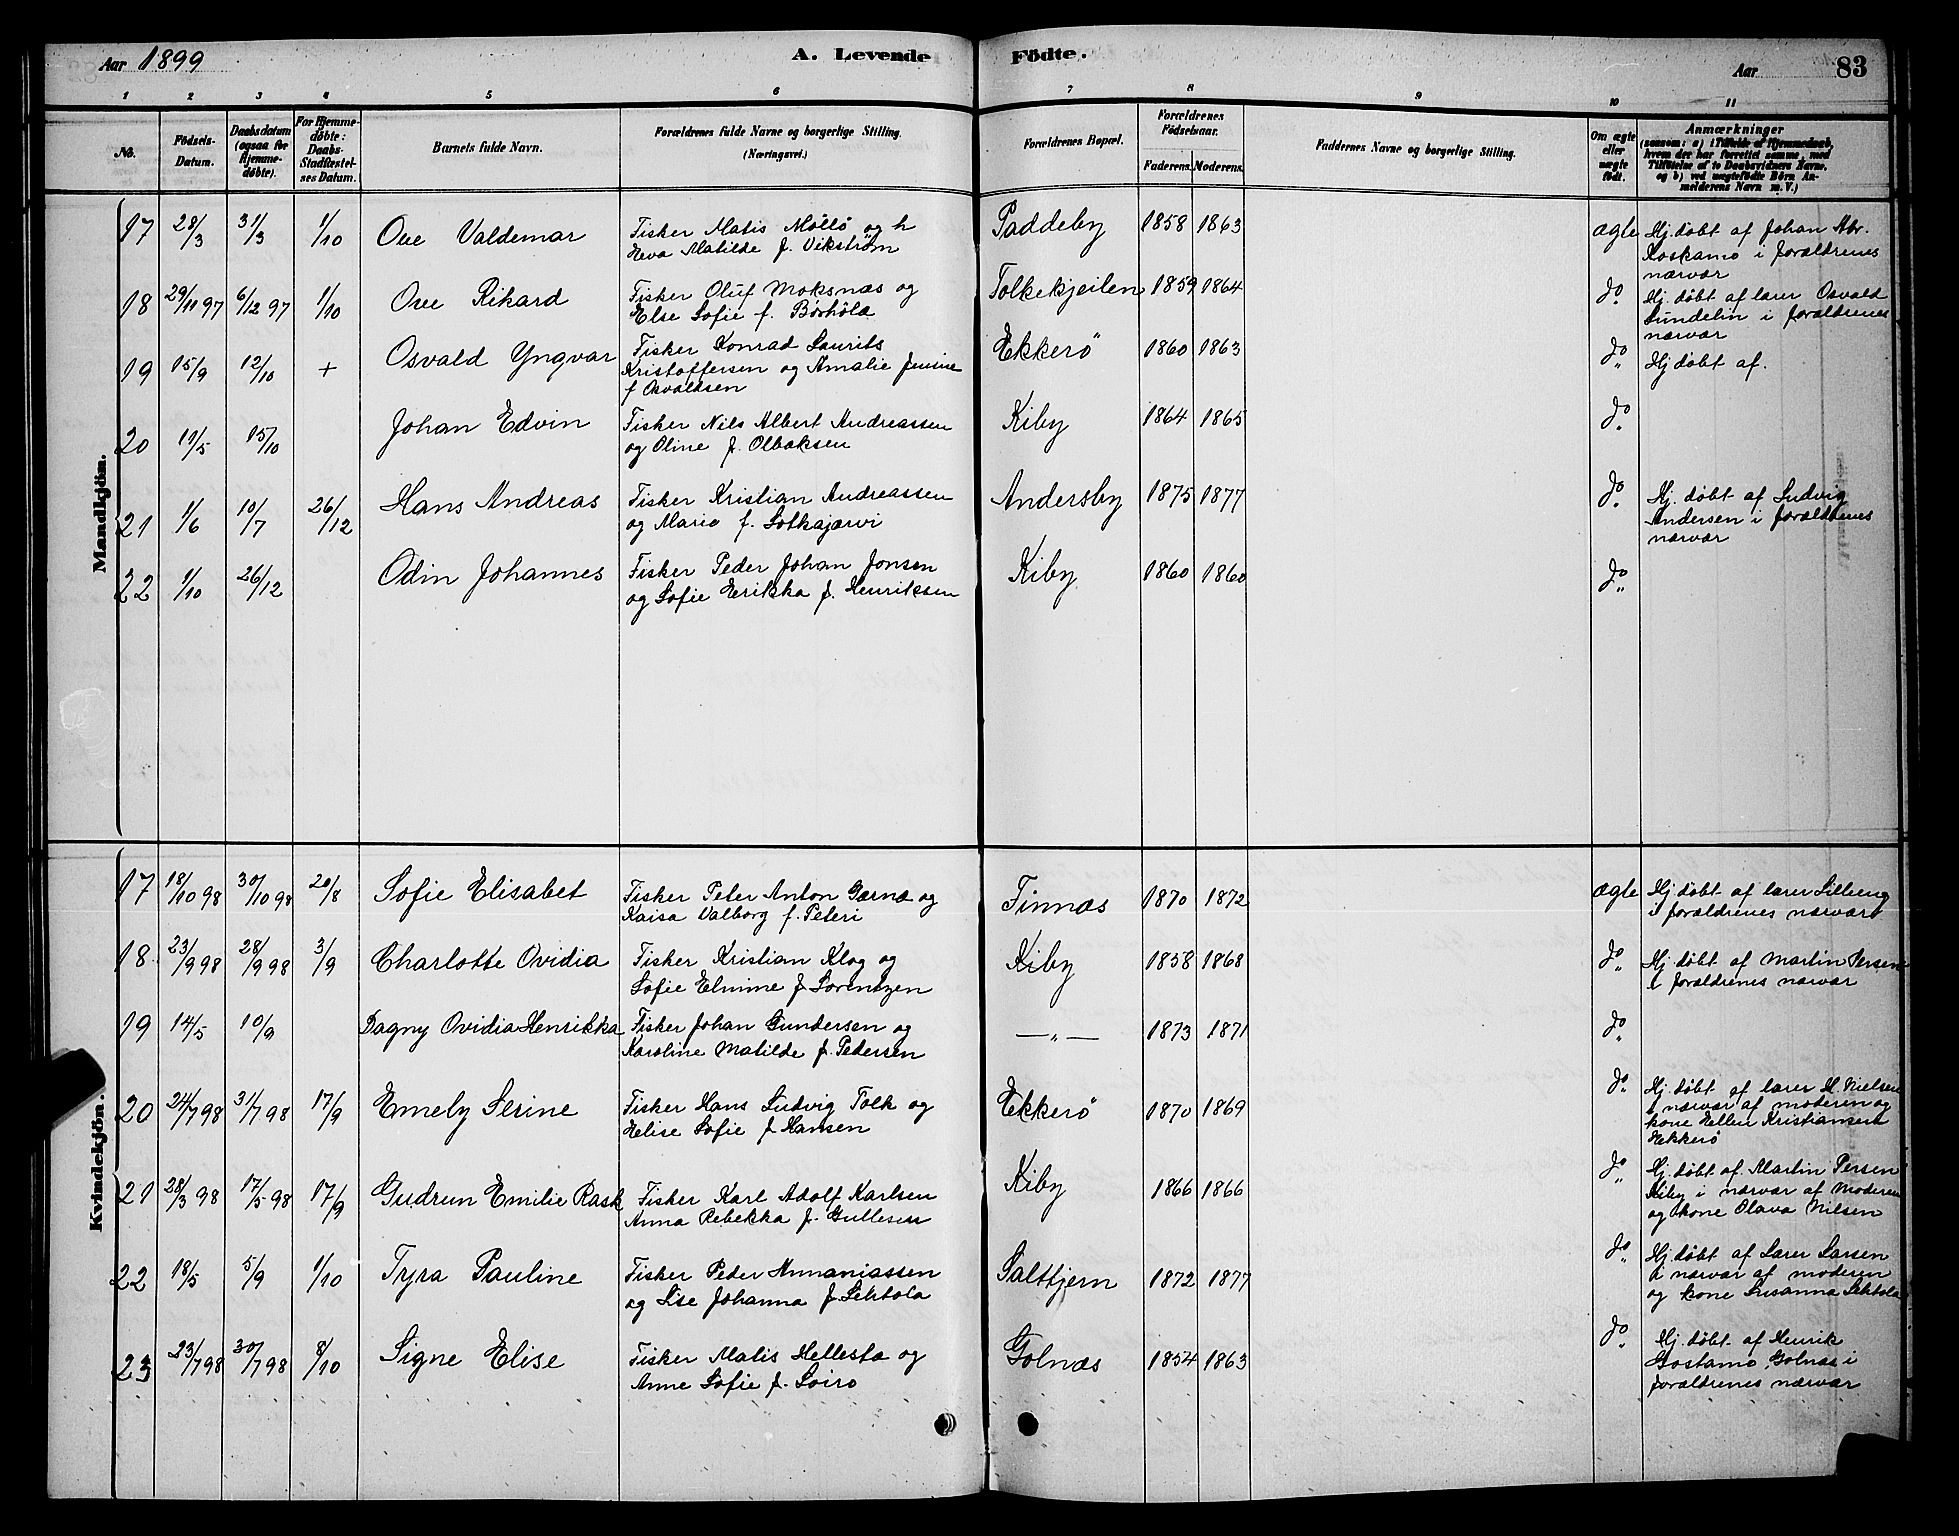 Aar 1899
A. Levende Födte.
Aar 83
1 2 3 4 5 6 7 8 9 10 11
No.
Födsels-Datum.
Daabsdatum (ogsaa for Hjemme-døbte).
For Hjemme-døbte: Daabs-Stadfæstel-ses Datum.
Barnets fulde Navn.
Forældrenes fulde Navne og borgerlige Stilling.
(Næringsvei.)
Forældrenes Bopæl.
Forældrenes Fødselsaar.
Faderens. Moderens.
Faddernes Navne og borgerlige Stilling.
Om ægte eller uægte født.
Anmærkninger
(saasom: a) i Tilfælde af Hjemmedaab, hvem der har forrettet samme, med Tilføielse af to Daabsvidners Navne, og b) ved uægtefødte Börn An-melderens Navn m. V.)
Mandkjön.
17 28/3 31/3 1/10 Ove Valdemar Fisker Matis Møllö og h Paddeby 1858 1863 ægte Hj. døbt af Johan Abr.
Heva Matilde f. Vikström Koskamo i forældrenes
nærvær
18 29/11 97 6/12 97 1/10 Ove Rikard Fisker Oluf Moksnæs og Folkekjeilen 1859 1864 do. Hj. døbt af lærer Osvald
Else Sofie f. Børhöla Sundelin i forældrenes
nærvær
19 15/9 12/10 + Osvald Yngvar Fisker Konrad Laurits Ekkerö 1860 1863 do Hj døbt af.
Kristoffersen og Amalie Jensine
f Osvaldsen
20 11/5 15/10 Johan Edvin Fisker Nils Albert Andreassen Kiby 1864 1865 do.
og Oline f. Olbaksen
21 1/6 10/7 26/12 Hans Andreas Fisker Kristian Andreassen Andersby 1875 1877 do. Hj. døbt af Ludvig
og Marie f. Sotkajærvi Andersen i forældrenes
nærvær
22 1/10 26/12 Odin Johannes Fisker Peder Johan Jonsen Kiby 1860 1860 do
og Sofie Erikka f. Henriksen
Kvindekjön.
17 18/10 98 30/10 98 20/8 Sofie Elisabet Fisker Peter Anton Gærnæ og Finnæs 1870 1872 ægte Hj døbt af lærer Lilleeng
Kaisa Valborg f. Peteri i forældrenes nærvær
18. 23/9 98 28/9 98 3/9 Charlotte Ovidia Fisker Kristian Klog og Kiby 1858 1868 do Hj døbt af Martin Persen
Sofie Elmine f Lorentzen i forældrenes nærvær
19 14/5 10/9 Dagny Ovidia Henrikka Fisker Johan Gundersen og —"— 1873 1871 do
Karoline Matilde f. Pedersen
20 24/7 98 31/7 98 17/9 Emely Serine Fisker Hans Ludvig Folk og Ekkerö 1870 1869 do. Hj. døbt af lærer H. Nielsen
Helise Sofie f Hansen i nærvær af moderen og
kone Ellen Kristiansen
Ekkerö
21 28/3 98 17/5 98 17/9 Gudrun Emilie Rask Fisker Karl Adolf Karlsen Kiby 1866 1866 do Hj. døbt af Martin Persen
Anna Rebekka f. Gullesen Kiby i nærvær af Moderen
og kone Olava Nilsen
22 18/5 5/9 1/10 Tyra Pauline Fisker Peder Annaniassen Saltkjern 1872 1877 do Hj døbt af Lærer Larsen
og Lise Johanna f. Lehtola i nærvær af moderen
og kone Susanna Lehtola
23 23/7 98 30/7 98 8/10 Signe Elise Fisker Matis Hellesta og Golnæs 1854 1863 do. Hj. døbt af Henrik
Anne Sofie f. Soiro Gostamo Golnæs i
forældrenes nærvær